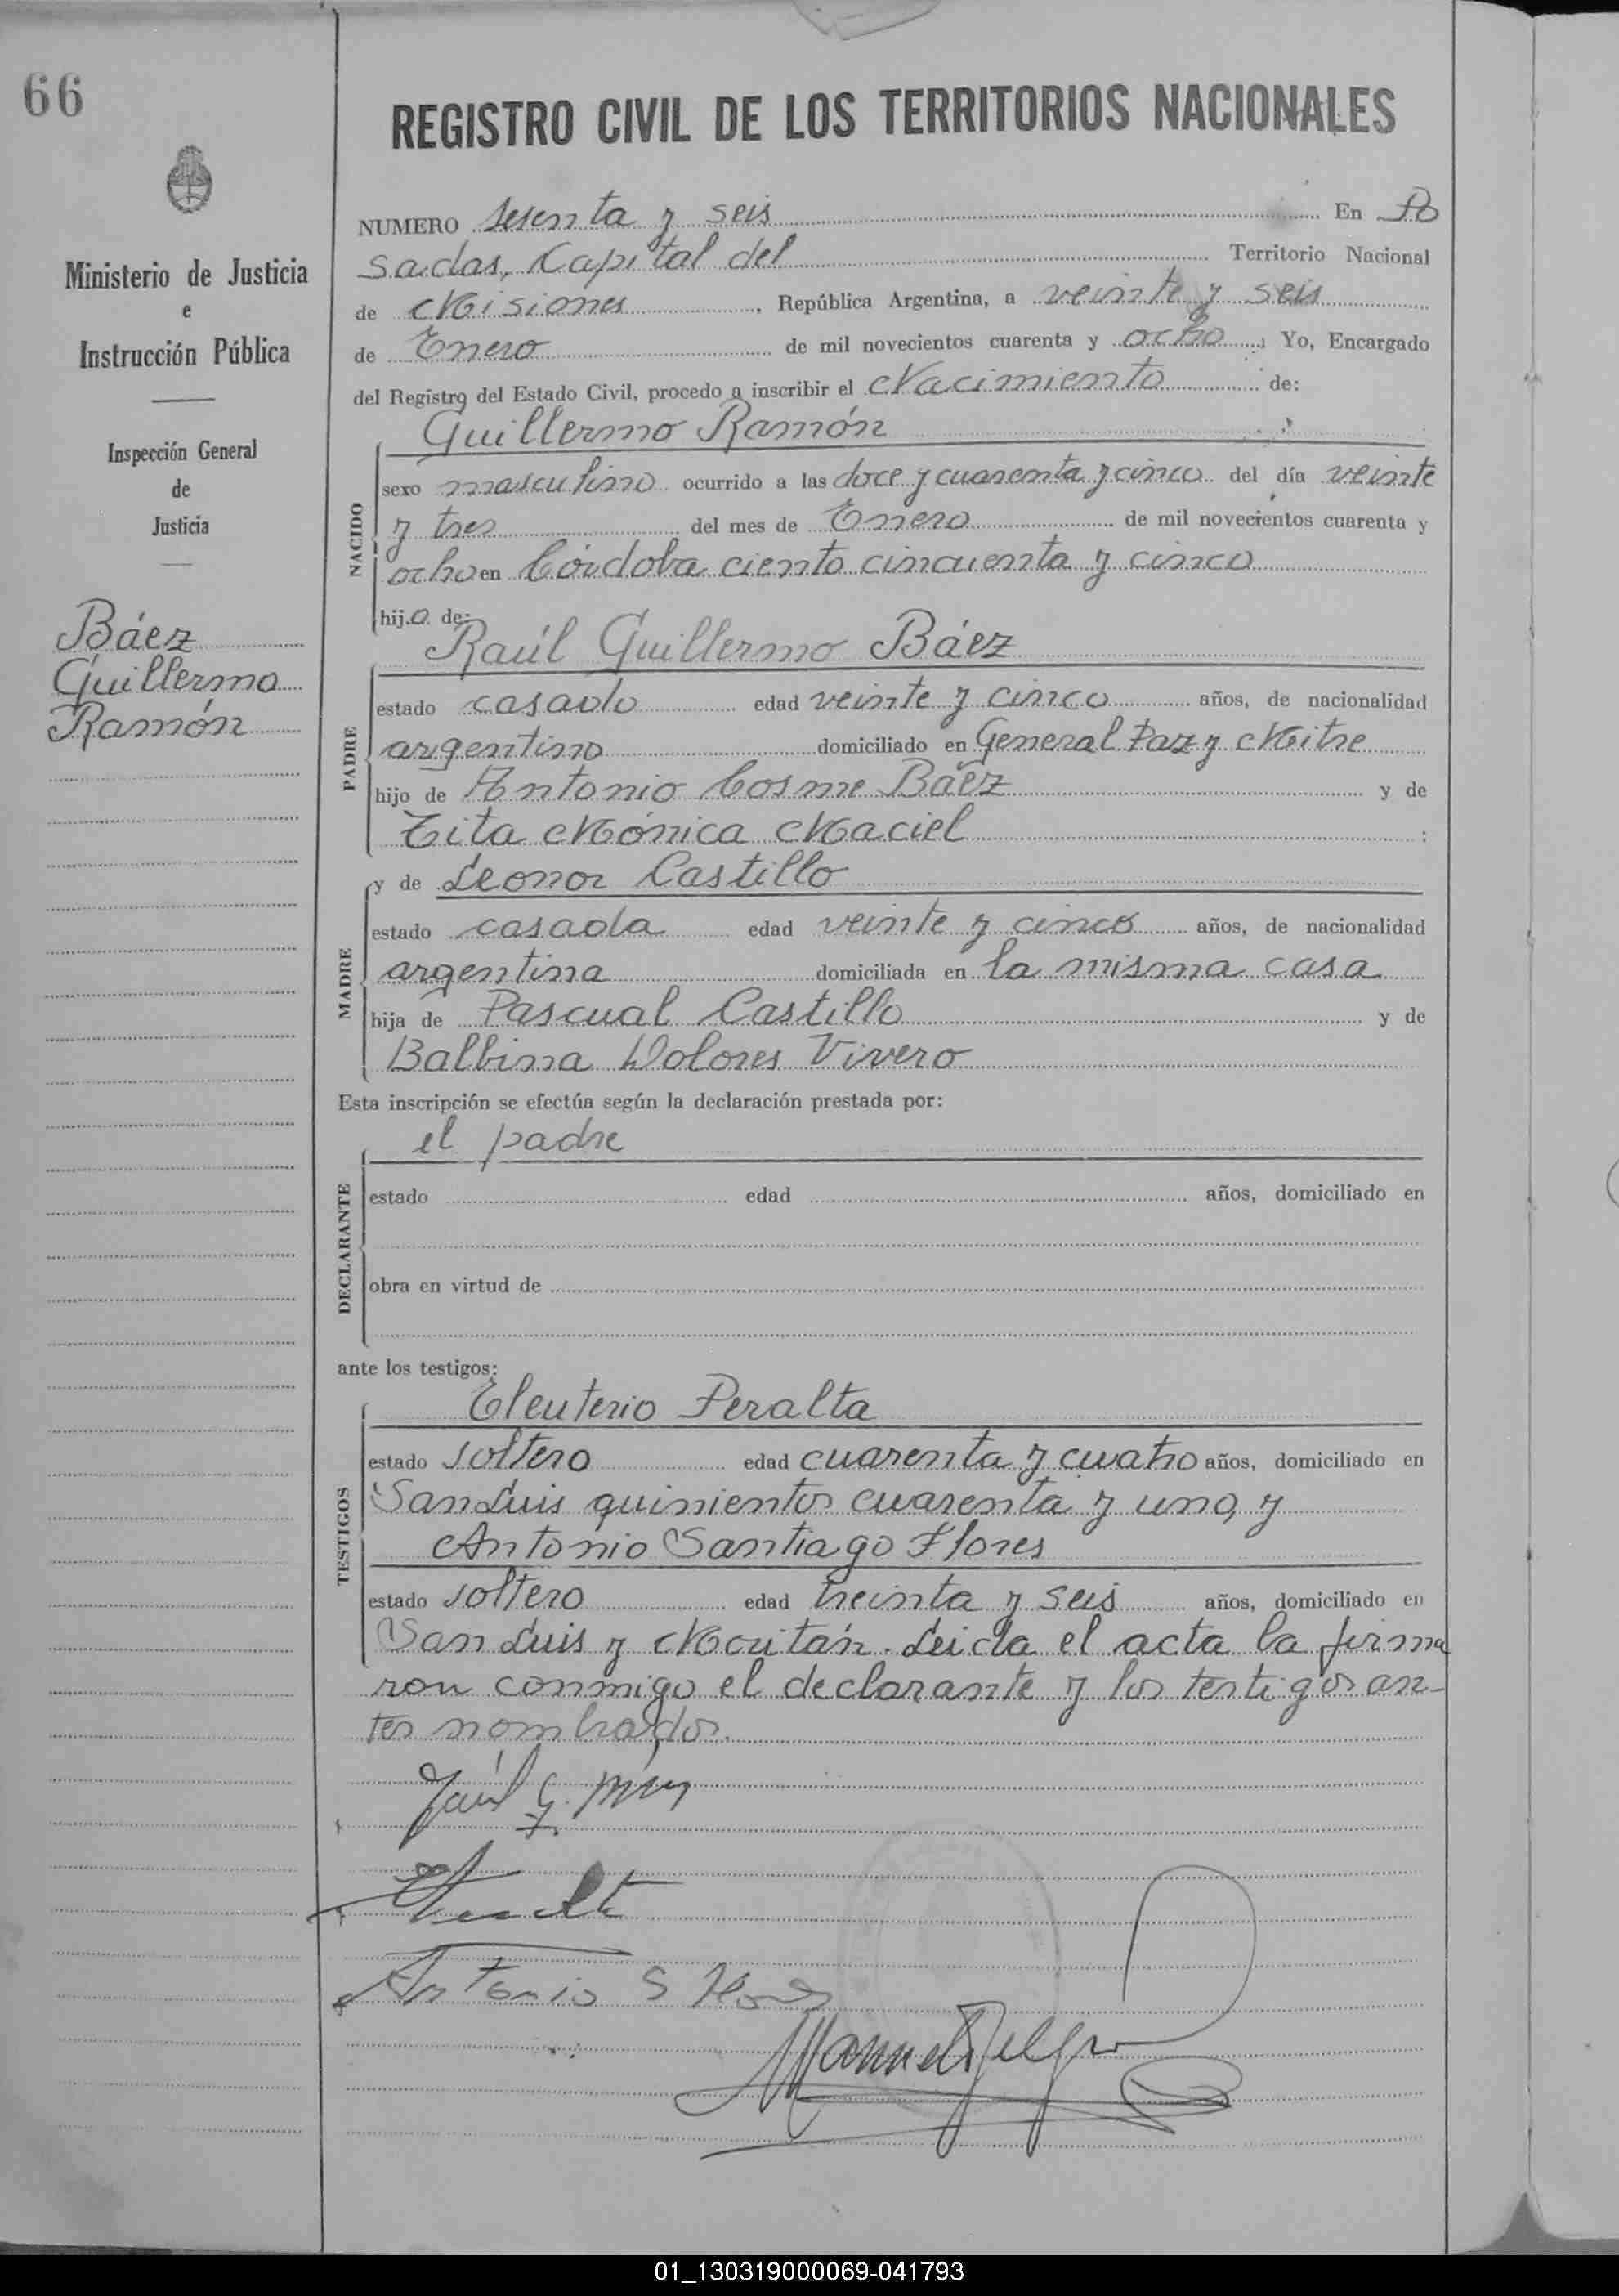 66
REGISTRO CIVIL DE LOS TERRITORIOS NACIONALES
Ministerio de Justicia
e
Instrucción Pública
Inspección General
de
Justicia
Báez
Guillermo
Ramón
NUMERO sesenta y seis En Po
sadas, Capital del Territorio Nacional
de Misiones, República Argentina, a veinte y seis
de Enero de mil novecientos cuarenta y ocho; Yo, Encargado
del Registro del Estado Civil, procedo a inscribir el Nacimiento de:
Guillermo Ramón
NACIDO
sexo masculino ocurrido a las doce y cuarenta y cinco del día veinte
y tres del mes de Enero de mil novecientos cuarenta y
ocho en Córdoba ciento cincuenta y cinco
hijo de:
Raúl Guillermo Báez
PADRE
estado casado edad veinte y cinco años, de nacionalidad
argentino domiciliado en General Paz y Mitre
hijo de Antonio Cosme Báez y de
Tita Mónica Maciel;
y de Leonor Castillo
MADRE
estado casada edad veinte y cinco años, de nacionalidad
argentina domiciliada en la misma casa
hija de Pascual Castillo y de
Balbina Dolores Vivero
Esta inscripción se efectúa según la declaración prestada por:
el padre
DECLARANTE
estado edad años, domiciliado en
obra en virtud de
ante los testigos:
Eleuterio Peralta
TESTIGOS
estado soltero edad cuarenta y cuatro años, domiciliado en
San Luis quinientos cuarenta y uno, y
Antonio Santiago Flores
estado soltero edad treinta y seis años, domiciliado en
San Luis y . Leida el acta la firma
ron conmigo el declarante y los testigos an-
tes nombrados.
Raúl G.
Antonio S Flores
Manuel
01_130319000069-041793